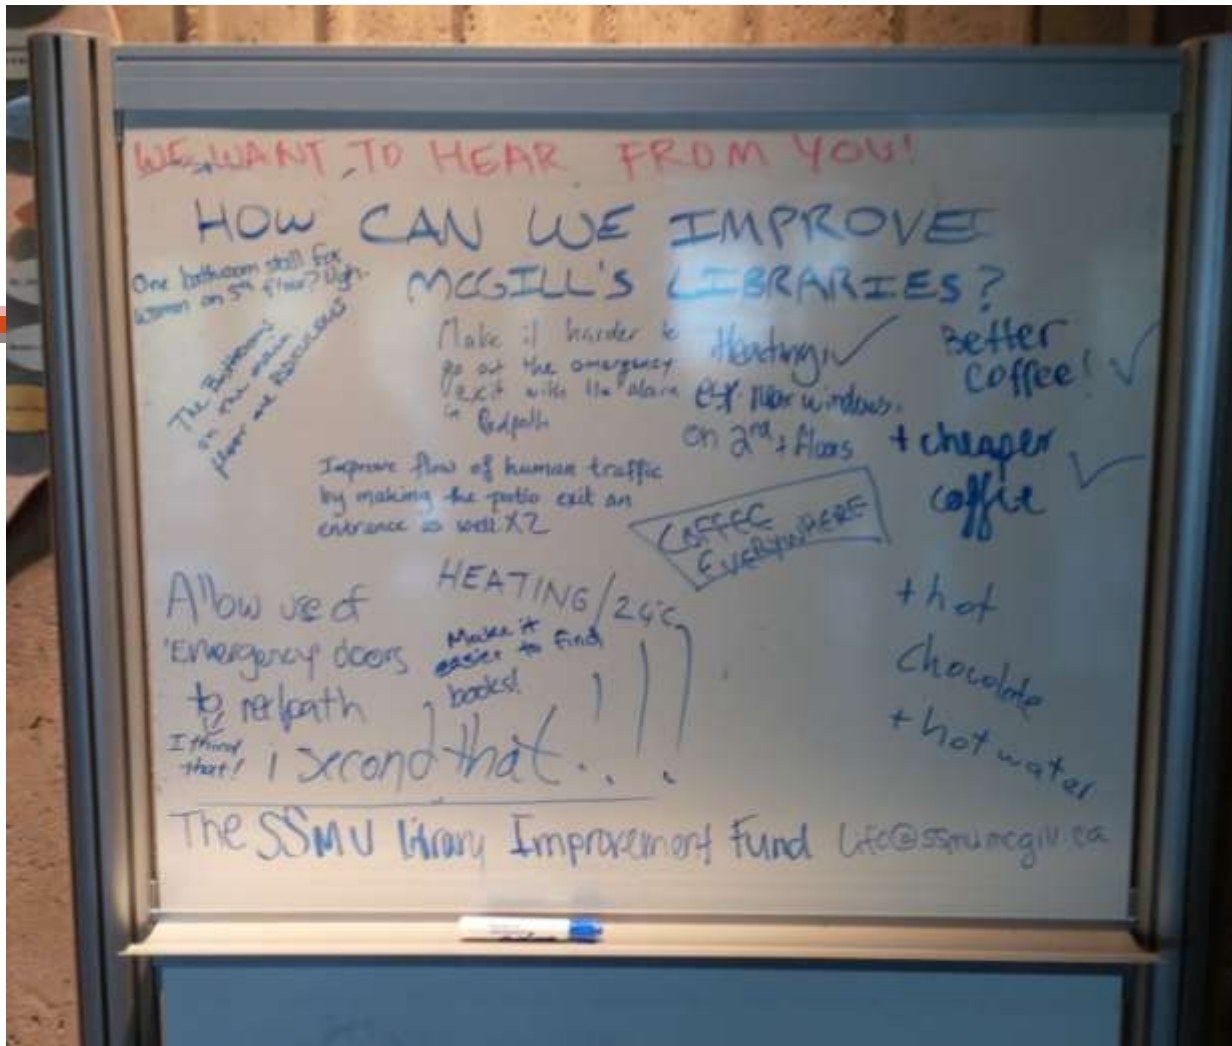 WE WANT TO HEAR FROM YOU!
HOW CAN WE IMPROVE
MCGILL'S LIBRARIES?
One bathroom stall for
women on 5th floor? Ugh.
The Bathrooms
on the main
floor are RIDICULOUS
Make it harder to
go out the emergency
exit with the alarm
in Redpath
Heating
esp. near windows.
on 2nd + floors
Better
Coffee!
+ cheaper
coffie
Improve flow of human traffic
by making the patio exit an
entrance as well X2
COFFEE
EVERYWHERE
HEATING/24°C
Allow use of
'Emergency' doors
to redpath
I third
that!
i second that...
Make it
easier to find
books!
+ hot
chocolate
+ hot water
The SSMU Library Improvement Fund